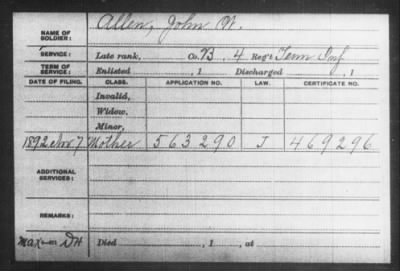 NAME OF SOLDIER: Allen, John W.
SERVICE: Late rank, Co. B, 4 Reg't Tenn Inf
TERM OF SERVICE: Enlisted , 1 Discharged , 1
DATE OF FILING. CLASS. APPLICATION NO. LAW. CERTIFICATE NO.
Invalid,
Widow,
Minor,
1892 Nov. 7 Mother 563290 J 469296
ADDITIONAL SERVICES:
REMARKS:
Died , 1 , at